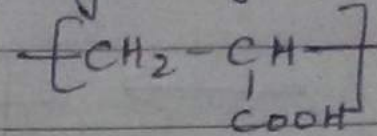 -[CH₂-CH-]
|
COOH